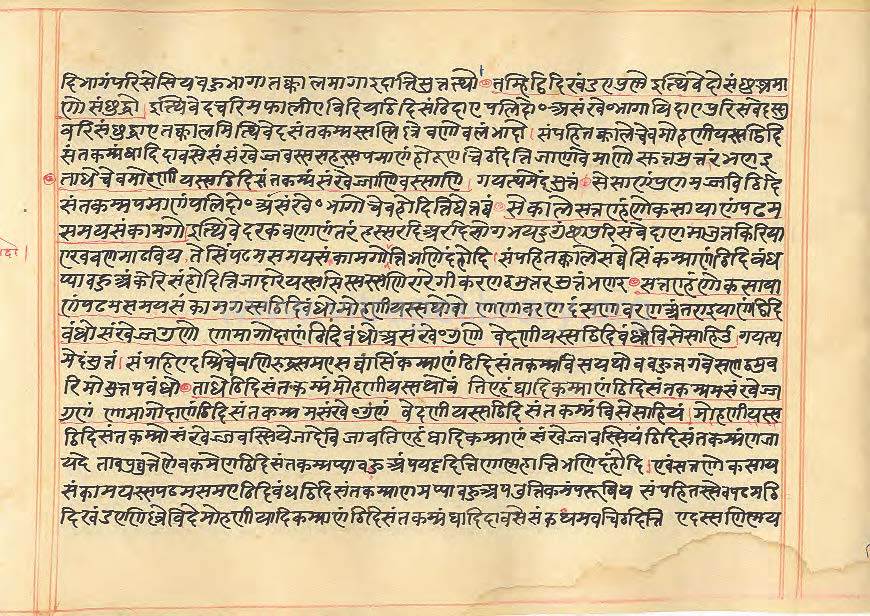 दिभागंपरिसेसियवहुभागा तक्कालमागाइदा त्ति सुत्तत्थो तम्हि ट्ठिदिखंडए पुण्णे इत्थिवेदो संछुब्भमा
णो संछुद्धो। इत्थिवेदचरिमफालीए विदियट्ठिदिसंठिदाए पलिदो॰ असंखे॰भागायिदाए पुरिसवेदस्सु
वरि संछुद्धाए तक्कालमित्थिवेदसंतकम्मस्स
संपहि तक्काले चेव मोहणीयस्स ट्ठिदि
संतकम्मं घादिदावसेसं संखेज्जवस्ससहस्सपमाणं होदूण चिट्ठदि त्ति जाणावेमाणो सुत्तमुत्तरं भणइ
ताधे चेव मोहणीयस्स ट्ठिदिसंतकम्मं संखेज्जाणि वस्साणि। गयत्थमेदं सुत्तं। सेसाणं पुण मज्जवि ट्ठिदि
संतकम्मपमाणं पलिदो॰ असंखे॰भागो चेव होदि त्ति घेत्तव्वं से काले सत्तण्हं णोकसायाणं पढम
समयसंकामगो इत्थिवेदक्खवणाणंतरं हस्सरदिअरदिसोगभयदुगुंछापुरिसवेदाणमाजुत्तकिरिया
ए खवणमाढविय तेसिं पढमसमयसंकामगो त्ति भणिदं होदि। संपहि तक्काले सव्वेसिं कम्माणं ट्ठिदिबंध
प्पाबहुअं केरिसं होदि त्ति जादारेयस्स सिस्सस्स णिरारेगीकरणट्ठमुत्तरसुत्तं भणइ सत्तण्हं णोकसाया
णं पढमसमयसंकामगस्स ट्ठिदिबंधो मोहणीयस्स थोवो णाणावरणदंसणावरणअंतराइयाणं ट्ठिदि
बंधो संखेज्जगुणो णामागोदाणं ट्ठिदिबंधो असंखे॰गुणो वेदणीयस्स ट्ठिदिबंधो विसेसाहिउ। गयत्थ
मेदं सुत्तं। संपहि एदम्मि चेव णिरुद्धसमए सव्वासिं कम्माणं ट्ठिदिसंतकम्मविसयथोवबहुत्तगवेसणट्ठमुव
रिमो सुत्तपबंधो ताधे ट्ठिदिसंतकम्मं मोहणीयस्स थोवं तिण्हं घादिकम्माणं ट्ठिदिसंतकम्ममसंखेज्ज
गुणं णामागोदाणं ट्ठिदिसंतकम्ममसंखे॰गुणं वेदणीयस्स ट्ठिदिसंतकम्मं विसेसाहियं। मोहणीयस्स
ट्ठिदिसंतकम्मे संखेज्जवस्सिये जादे वि जाव तिण्हं घादिकम्माणं संखेज्जवस्सियं ट्ठिदिसंतकम्मं ण जा
यदे ताव पुव्वुत्तेणेव कमेण ट्ठिदिसंतकम्मप्पाबहुअं पयट्टदि त्ति
भणिदं होदि। एवं सत्तणोकसाय
संकामयस्स पढमसमए ट्ठिदिबंधट्ठिदिसंतकम्माणमप्पाबहुअपउत्तिकमं परूविय संपहि तस्सेव पढमट्ठि
दिखंडए णिट्ठिदे मोहणीयादिकम्माणं ट्ठिदिसंतकम्मं घादिदावसेसं कथमवचिट्ठदि त्ति एदस्स णिण्णय